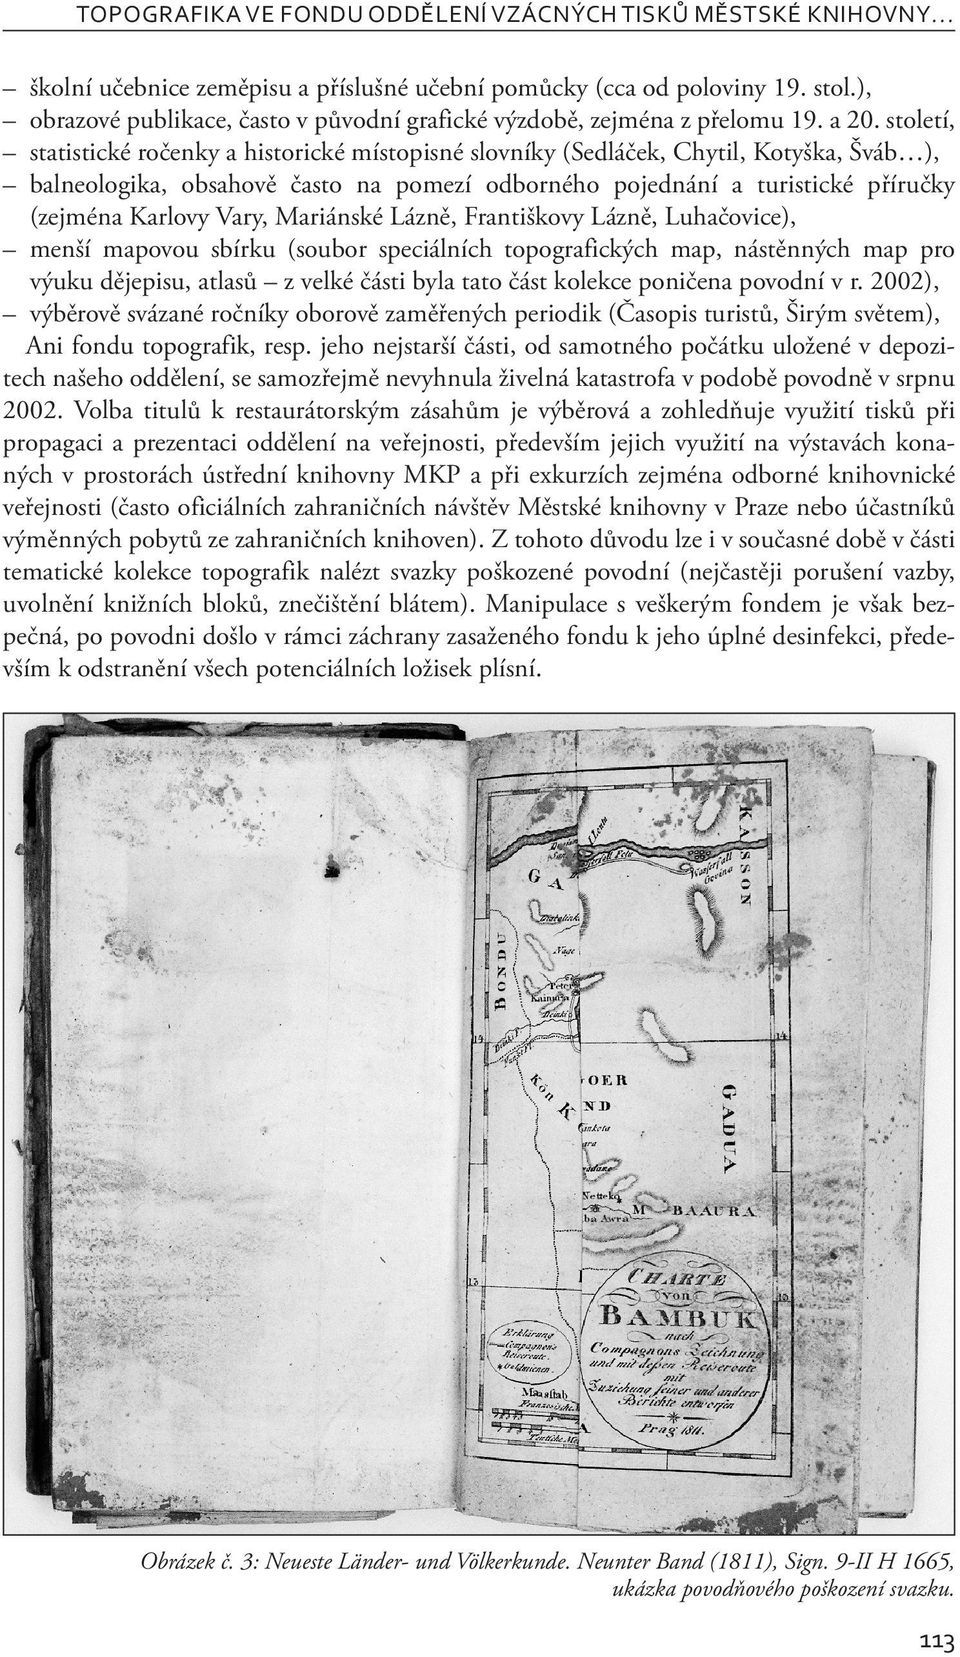 TOPOGRAFIKA VE FONDU ODDĚLENÍ VZÁCNÝCH TISKŮ MĚSTSKÉ KNIHOVNY…
– školní učebnice zeměpisu a příslušné učební pomůcky (cca od poloviny 19. stol.),
– obrazové publikace, často v původní grafické výzdobě, zejména z přelomu 19. a 20. století,
– statistické ročenky a historické místopisné slovníky (Sedláček, Chytil, Kotyška, Šváb…),
– balneologika, obsahově často na pomezí odborného pojednání a turistické příručky
(zejména Karlovy Vary, Mariánské Lázně, Františkovy Lázně, Luhačovice),
– menší mapovou sbírku (soubor speciálních topografických map, nástěnných map pro
výuku dějepisu, atlasů – z velké části byla tato část kolekce poničena povodní v r. 2002),
– výběrově svázané ročníky oborově zaměřených periodik (Časopis turistů, Širým světem),
Ani fondu topografik, resp. jeho nejstarší části, od samotného počátku uložené v depozi-
tech našeho oddělení, se samozřejmě nevyhnula živelná katastrofa v podobě povodně v srpnu
2002. Volba titulů k restaurátorským zásahům je výběrová a zohledňuje využití tisků při
propagaci a prezentaci oddělení na veřejnosti, především jejich využití na výstavách kona-
ných v prostorách ústřední knihovny MKP a při exkurzích zejména odborné knihovnické
veřejnosti (často oficiálních zahraničních návštěv Městské knihovny v Praze nebo účastníků
výměnných pobytů ze zahraničních knihoven). Z tohoto důvodu lze i v současné době v části
tematické kolekce topografik nalézt svazky poškozené povodní (nejčastěji porušení vazby,
uvolnění knižních bloků, znečištění blátem). Manipulace s veškerým fondem je však bez-
pečná, po povodni došlo v rámci záchrany zasaženého fondu k jeho úplné desinfekci, přede-
vším k odstranění všech potenciálních ložisek plísní.
KASSON
Felu
Wasserfall
Govina
G A
BONDU
Nage
Peter
Kainura
14
14
Kón
K
OER
ND
GADUA
Netteko
ba Awra
M
BAAURA
13
13
CHARTE
von
BAMBUK
nach
Compagnons Zeichnung
und mit deßen Reiseroute
mit
Zuziehung seiner und anderer
Berichte entworfen
Prag 1811.
Erklärung
Compagnons
Reiseroute.
Goldminen.
Maasstab
Obrázek č. 3: Neueste Länder- und Völkerkunde. Neunter Band (1811), Sign. 9-II H 1665,
ukázka povodňového poškození svazku.
113